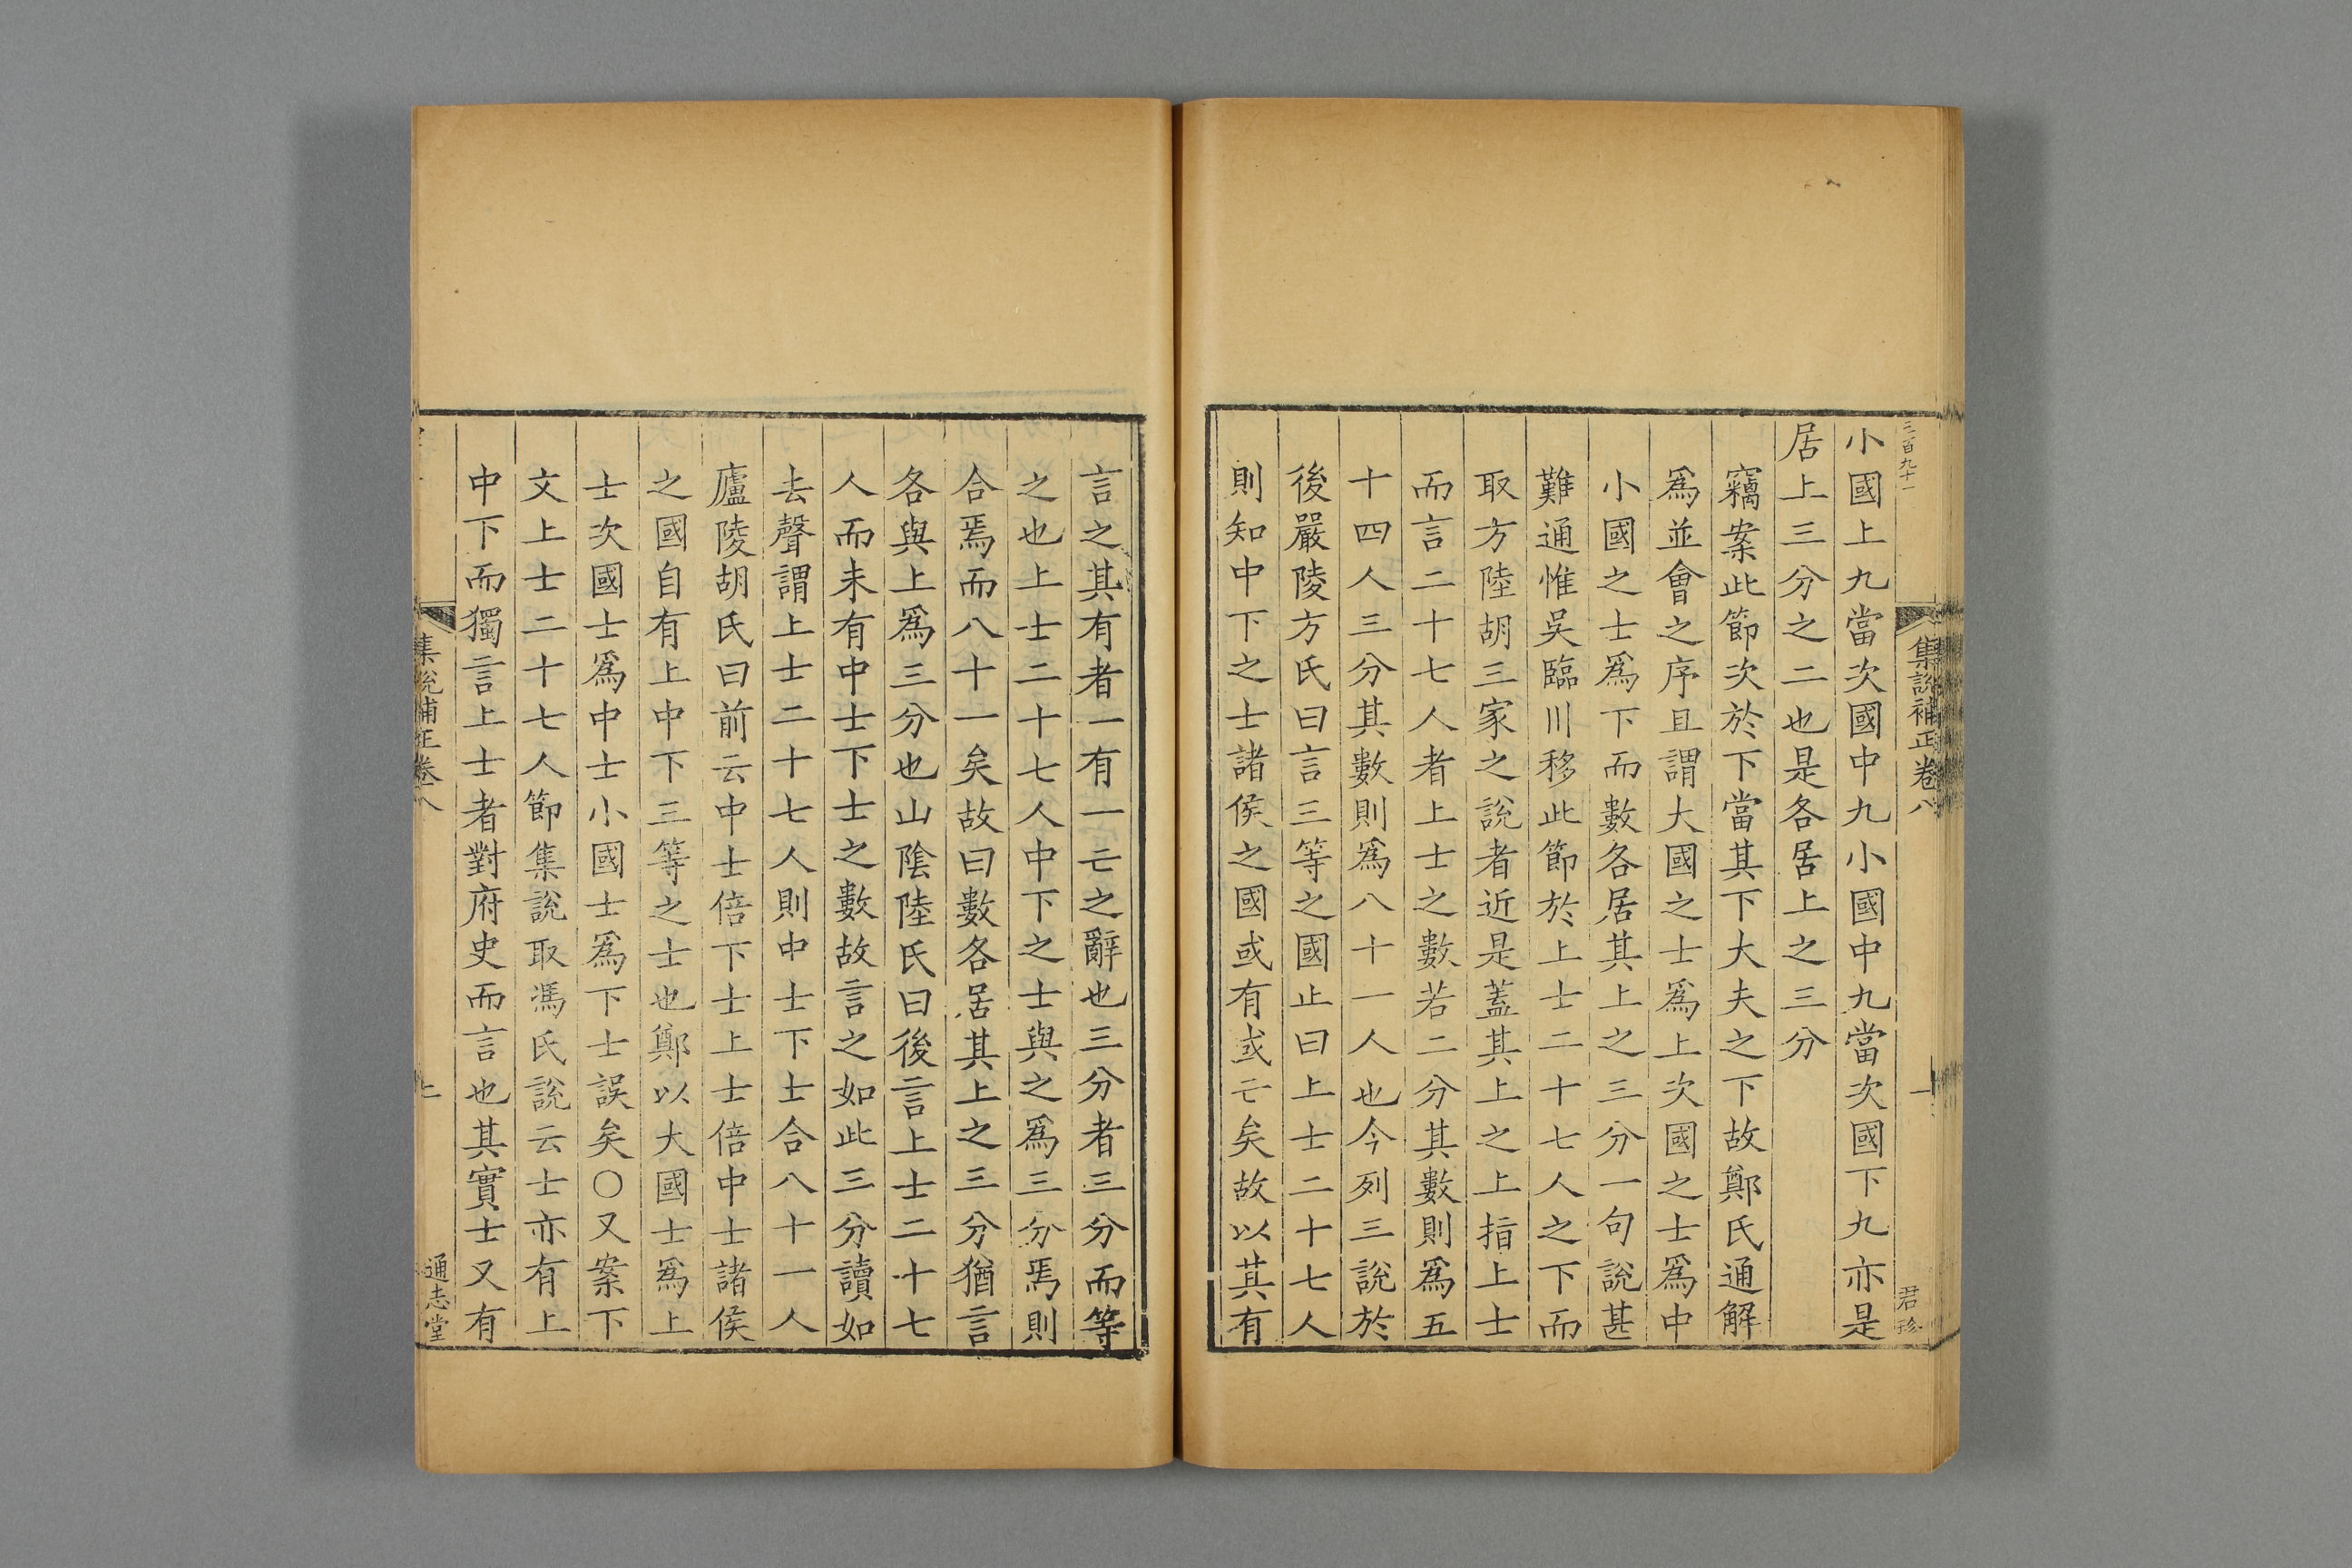 三百九十一
集說補正卷八
君珍
小國上九當次國中九小國中九當次國下九亦是
居上三分之二也是各居上之三分
竊案此節次於下當其下大夫之下故鄭氏通解
爲並會之序且謂大國之士爲上次國之士爲中
小國之士爲下而數各居其上之三分一句說甚
難通惟吳臨川移此節於上士二十七人之下而
取方陸胡三家之說者近是蓋其上之上指上士
而言二十七人者上士之數若二分其數則爲五
十四人三分其數則爲八十一人也今列三說於
後嚴陵方氏曰言三等之國止曰上士二十七人
則知中下之士諸侯之國或有或亡矣故以其有
言之其有者一有一亡之辭也三分者三分而等
之也上士二十七人中下之士與之爲三分焉則
合焉而八十一矣故曰數各居其上之三分猶言
各與上爲三分也山陰陸氏曰後言上士二十七
人而未有中士下士之數故言之如此三分讀如
去聲謂上士二十七人則中士下士合八十一人
廬陵胡氏曰前云中士倍下士上士倍中士諸侯
之國自有上中下三等之士也鄭以大國士爲上
士次國士爲中士小國士爲下士誤矣○又案下
文上士二十七人節集說取馮氏說云士亦有上
中下而獨言上士者對府史而言也其實士又有
集說補正卷八
通志堂